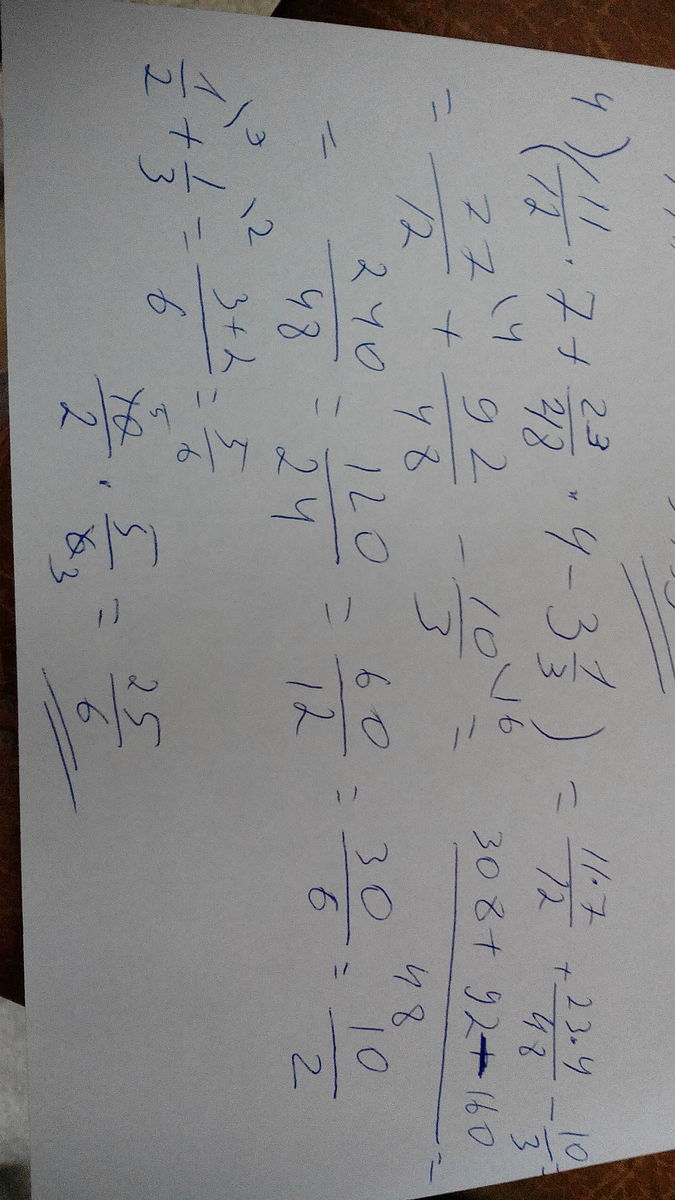 4) (11/12 · 7 + 23/48 · 4 - 3 1/3) = 11·7/12 + 23·4/48 - 10/3
= 77/12 \4 + 92/48 - 10/3 \16 = 308 + 92 - 160/48 =
= 240/48 = 120/24 = 60/12 = 30/6 = 10/2
1/2 \3 + 1/3 \2 = 3+2/6 = 5/6
10 5/2 · 5/6 3 = 25/6